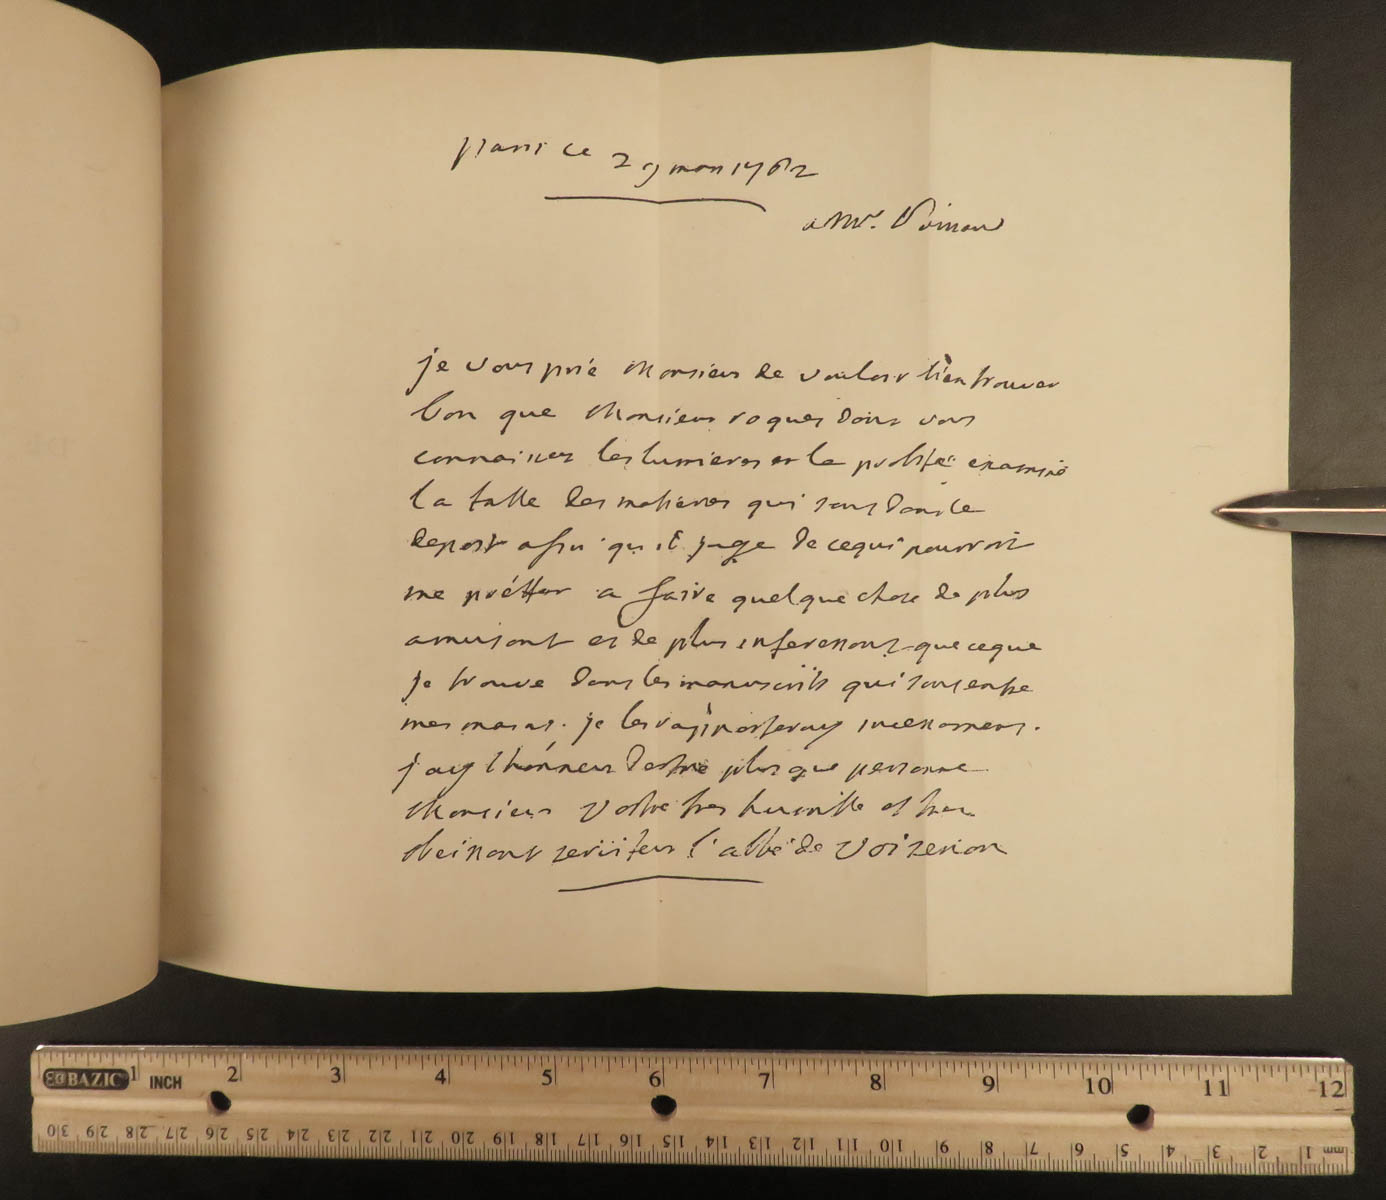 paris ce 29 mars 1762
a Mr.
je vous prie Monsieur de vouloir bien trouver
bon que Monsieur roques dont vous
connaissez les lumieres et la probité examine
la table des matieres qui sont dans le
depost afin qu il juge de ce qui pourroit
me prétter a faire quelque chose de plus
amusant et de plus interessant que ce que
je trouve dans les manuscrits qui sont entre
mes mains. je les rapporteray incessament.
j'ay l'honneur d'estre plus que personne
Monsieur Vostre tres humble et tres
obeissant serviteur l'abbé de Voisenon
BAZIC 1 INCH 2 3 4 5 6 7 8 9 10 11 12
30 29 28 27 26 25 24 23 22 21 20 19 18 17 16 15 14 13 12 11 10 9 8 7 6 5 4 3 2 1 mm